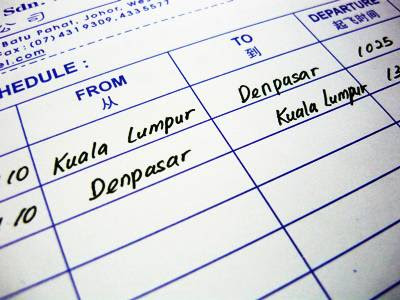 Sdn.
Batu Pahat, Johor,
Fax: (07) 4319309. 4335577
el.com
HEDULE :
FROM TO DEPARTURE
从 到 起飞时间
10 Kuala Lumpur Denpasar 1025
10 Denpasar Kuala Lumpur